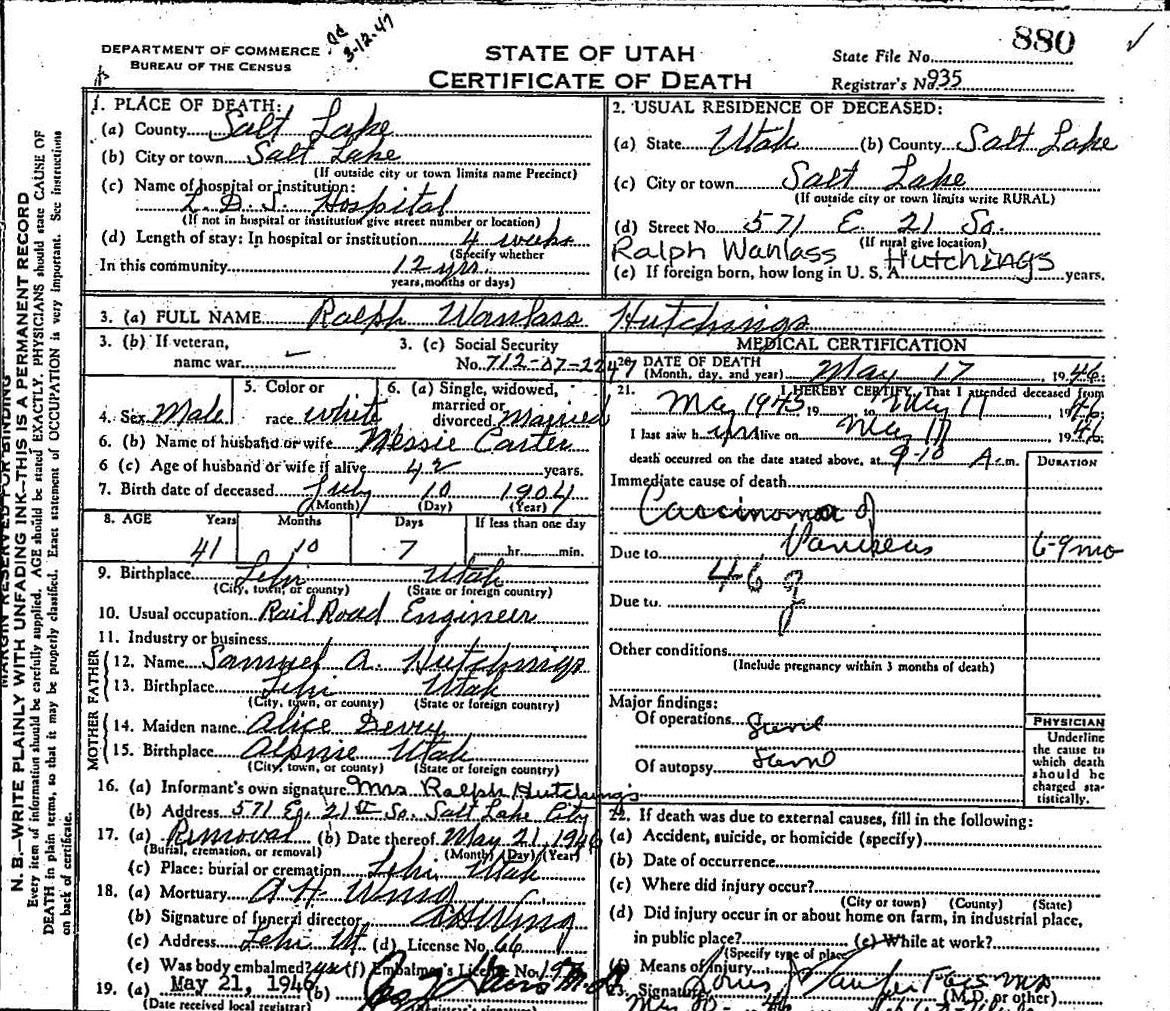 880
DEPARTMENT OF COMMERCE
BUREAU OF THE CENSUS
3-12-47
STATE OF UTAH
CERTIFICATE OF DEATH
State File No.
Registrar's No. 935
MARGIN RESERVED FOR BINDING
N. B.—WRITE PLAINLY WITH UNFADING INK—THIS IS A PERMANENT RECORD
Every item of information should be carefully supplied. AGE should be stated EXACTLY, PHYSICIANS should state CAUSE OF
DEATH in plain terms, so that it may be properly classified. Exact statement of OCCUPATION is very important. See instructions
on back of certificate.
1. PLACE OF DEATH:
(a) County Salt Lake
(b) City or town Salt Lake
(If outside city or town limits name Precinct)
(c) Name of hospital or institution:
L. D. S. Hospital
(If not in hospital or institution give street number or location)
(d) Length of stay: In hospital or institution 4 weeks
(Specify whether
In this community 12 yrs.
years, months or days)
2. USUAL RESIDENCE OF DECEASED:
(a) State Utah (b) County Salt Lake
(c) City or town Salt Lake
(If outside city or town limits write RURAL)
(d) Street No. 571 E. 21 So.
(If rural give location)
Ralph Wanlass Hutchings
(e) If foreign born, how long in U. S. A. years.
3. (a) FULL NAME Ralph Wanlass Hutchings
3. (b) If veteran,
name war
3. (c) Social Security
No. 712-07-2247
4. Sex Male
5. Color or
race white
6. (a) Single, widowed,
married or
divorced Married
6. (b) Name of husband or wife Messie Carter
6 (c) Age of husband or wife if alive 42 years.
7. Birth date of deceased July 10 1904
(Month) (Day) (Year)
8. AGE Years Months Days If less than one day
41 10 7 hr. min.
9. Birthplace Lehi Utah
(City, town, or county) (State or foreign country)
10. Usual occupation Rail Road Engineer
11. Industry or business
FATHER
12. Name Samuel A. Hutchings
13. Birthplace Lehi Utah
(City, town, or county) (State or foreign country)
MOTHER
14. Maiden name Alice Devey
15. Birthplace Alpine Utah
(City, town, or county) (State or foreign country)
16. (a) Informant's own signature Mrs Ralph Hutchings
(b) Address 571 E. 21st So. Salt Lake City
17. (a) Removal (b) Date thereof May 21, 1946
(Burial, cremation, or removal) (Month) (Day) (Year)
(c) Place: burial or cremation Lehi Utah
18. (a) Mortuary A. H. Wing
(b) Signature of funeral director A H Wing
(c) Address Lehi Ut (d) License No. 66
(e) Was body embalmed? yes (f) Embalmer's License No.
19. (a) May 21, 1946 (b)
(Date received local registrar) (Registrar's signature)
MEDICAL CERTIFICATION
20. DATE OF DEATH
(Month, day, and year) May 17 1946
21. I HEREBY CERTIFY, That I attended deceased from
May 1945 19 to May 17 1946
I last saw him alive on May 17 1946
death occurred on the date stated above, at 9-10 A.m.
DURATION
Immediate cause of death
Carcinoma of
Due to Pancreas 6-9 mo
46 g
Due to
Other conditions
(Include pregnancy within 3 months of death)
Major findings:
Of operations
Of autopsy
PHYSICIAN
Underline
the cause to
which death
should be
charged sta-
tistically.
22. If death was due to external causes, fill in the following:
(a) Accident, suicide, or homicide (specify)
(b) Date of occurrence
(c) Where did injury occur?
(City or town) (County) (State)
(d) Did injury occur in or about home on farm, in industrial place,
in public place? (e) While at work?
(Specify type of place)
(f) Means of injury
23. Signature
(M.D. or other)